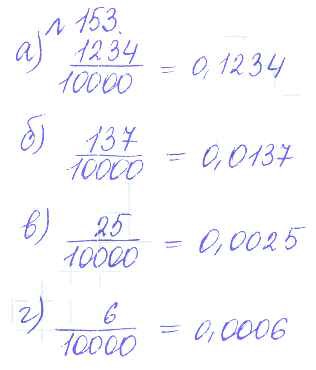 № 153.
а) 1234/10000 = 0,1234
б) 137/10000 = 0,0137
в) 25/10000 = 0,0025
г) 6/10000 = 0,0006